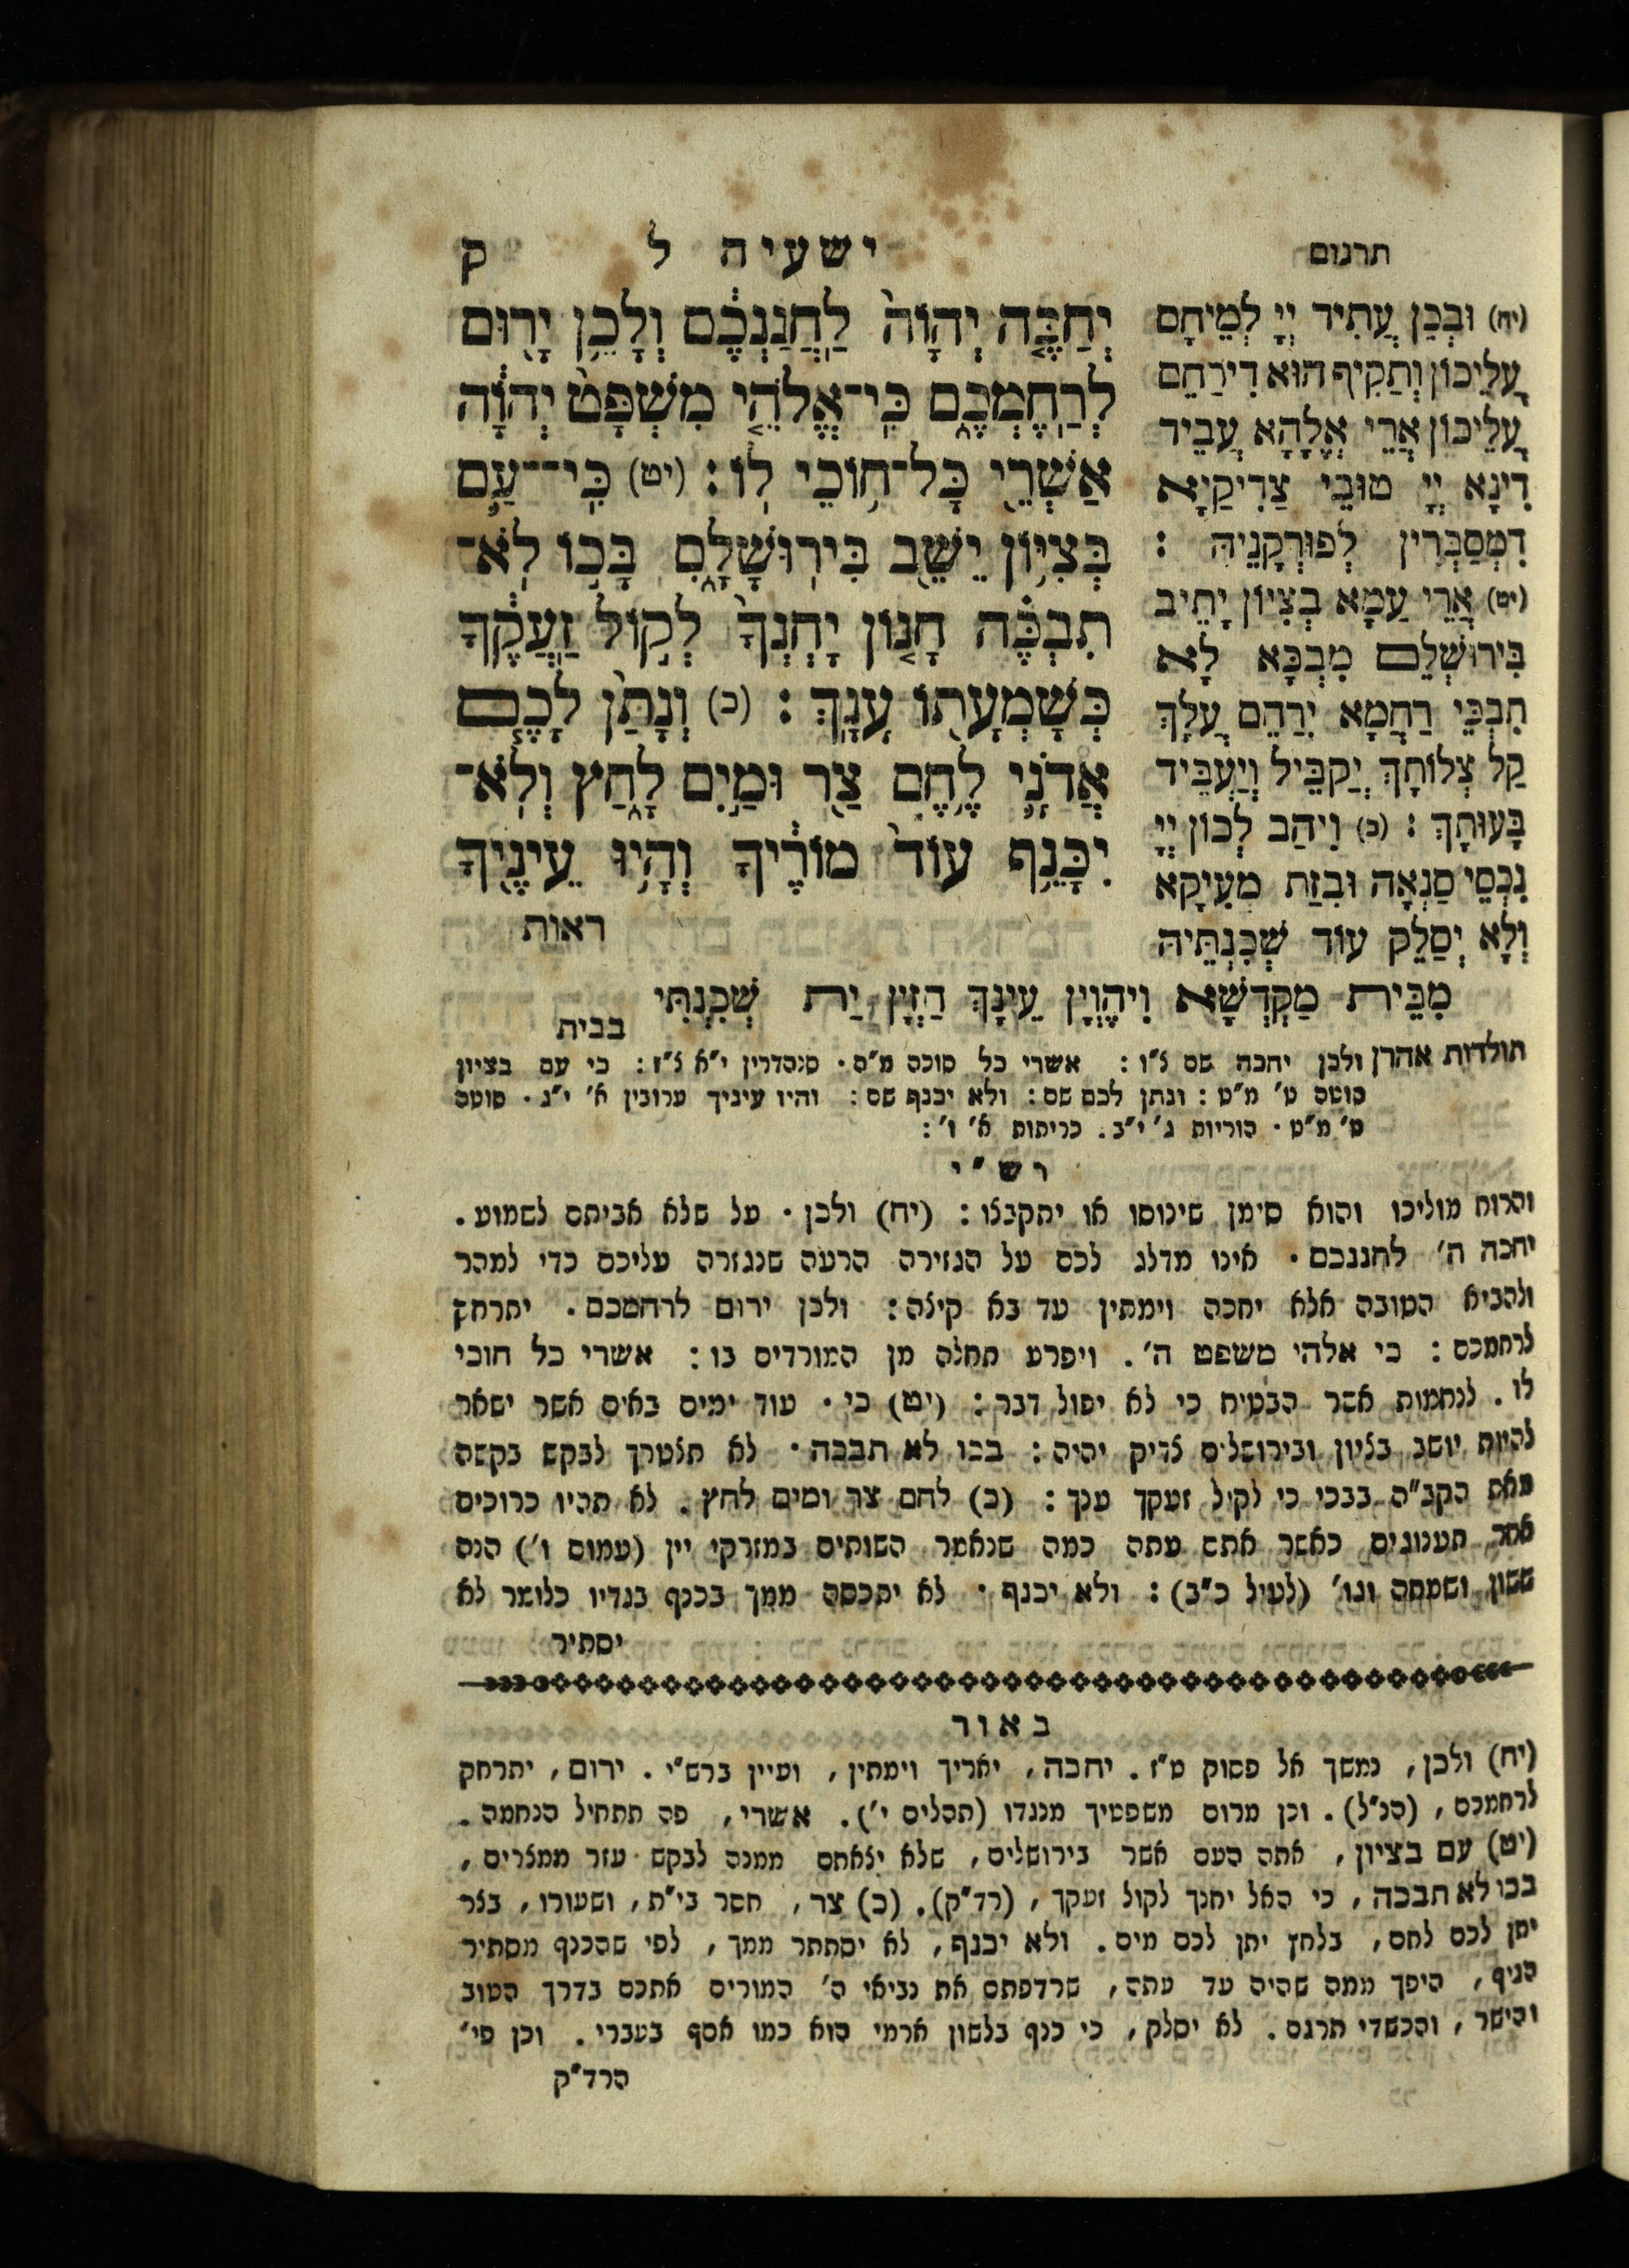 ישעיה ל ק
יְחַכֶּה יְהוָֹה לַחֲנַנְכֶם וְלָכֵן יָרוּם
לְרַחֶמְכֶם כִּי־אֱלֹהֵי מִשְׁפָּט יְהוָֹה
אַשְׁרֵי כָּל־חוֹכֵי לוֹ׃ (יט) כִּי־עַם
בְּצִיּוֹן יֵשֵׁב בִּירוּשָׁלָםִ בָּכוֹ לֹא־
תִבְכֶּה חָנוֹן יָחְנְךָ לְקוֹל זַעֲקֶךָ
כְּשָׁמְעָתוֹ עָנָךְ׃ (כ) וְנָתַן לָכֶם
אֲדֹנָי לֶחֶם צַר וּמַיִם לָחַץ וְלֹא־
יִכָּנֵף עוֹד מוֹרֶיךָ וְהָיוּ עֵינֶיךָ
ראות
תרגום
(יח) וּבְכֵן עֲתִיד יְיָ לְמֵיחָם
עֲלֵיכוֹן וְתַקִיף הוּא דִירַחֵם
עֲלֵיכוֹן אֲרֵי אֱלָהָא עֲבֵיד
דִינָא יְיָ טוּבֵי צַדִיקַיָא
דִמְסַבְּרִין לְפוּרְקָנֵיהּ :
(יט) אֲרֵי עַמָא בְצִיוֹן יָתֵיב
בִּירוּשְׁלֵם מִבְכָּא לָא
תִבְכֵּי רַחֲמָא יִרַחֵם עֲלָךְ
קַל צְלוֹתָךְ יְקַבֵּיל וְיַעְבֵּיד
בָּעוּתָךְ : (כ) וִיהַב לְכוֹן יְיָ
נִכְסֵי סַנְאָה וּבִזַת מְעִיקָא
וְלָא יְסַלֵק עוֹד שְׁכִנְתֵּיהּ
מִבֵּית מַקְדְשָׁא וִיהֶוְיָן עֵינָךְ חַזְיָן יַת שְׁכִנְתִּי
בבית
תולדות אהרן ולכן יחכה שם צ"ו : אשרי כל סוכה מ"ה . סנהדרין י"א צ"ז : כי עם בציון
סוטה ט' מ"ט : ונתן לכם שם : ולא יכנף שם : והיו עיניך ערובין א' י"ג . סוטה
ט' מ"ט . הוריות ג' י"ב . כריתות א' ו' :
רש"י
והרוח מוליכו והוא סימן שינוסו או יתקבצו : (יח) ולכן . על שלא אביתם לשמוע .
יחכה ה' לחננכם . אינו מדלג לכם על הגזירה הרעה שנגזרה עליכם כדי למהר
ולהביא הטובה אלא יחכה וימתין עד בא קיצה : ולכן ירום לרחמכם . יתרחק
לרחמכם : כי אלהי משפט ה' . ויפרע תחלה מן המורדים בו : אשרי כל חוכי
לו . לנחמות אשר הבטיח כי לא יפול דבר : (יט) כי . עוד ימים באים אשר ישאר
להיות יושב בציון ובירושלים צדיק יהיה : בכו לא תבכה . לא תצטרך לבקש בקשה
מאת הקב"ה בבכי כי לקול זעקך ענך : (כ) לחם צר ומים לחץ . לא תהיו כרוכים
אחר תענוגים כאשר אתם עתה כמה שנאמר השותים במזרקי יין (עמוס ו') הנה
ששון ושמחה וגו' (לעיל כ"ב) : ולא יכנף . לא יתכסה ממך בכנף בגדיו כלומר לא
יסתיר
באור
(יח) ולכן, נמשך אל פסוק ט"ז . יחכה, יאריך וימתין, ועיין ברש"י . ירום, יתרחק
לרחמכם, (הנ"ל) . וכן מרום משפטיך מנגדו (תהלים י') . אשרי, פה תתחיל הנחמה .
(יט) עם בציון, אתה העם אשר בירושלים, שלא יצאתם ממנה לבקש עזר ממצרים,
בכו לא תבכה, כי האל יחנך לקול זעקך, (רד"ק) . (כ) צר, חסר בי"ת, ושעורו, בצר
יתן לכם לחם, בלחץ יתן לכם מים . ולא יכנף, לא יסתתר ממך, לפי שהכנף מסתיר
הגוף, היפך ממה שהיה עד עתה, שרדפתם את נביאי ה' המורים אתכם בדרך הטוב
והישר, והכשדי תרגם . לא יסלק, כי כנף בלשון ארמי הוא כמו אסף בעברי . וכן פי'
הרד"ק